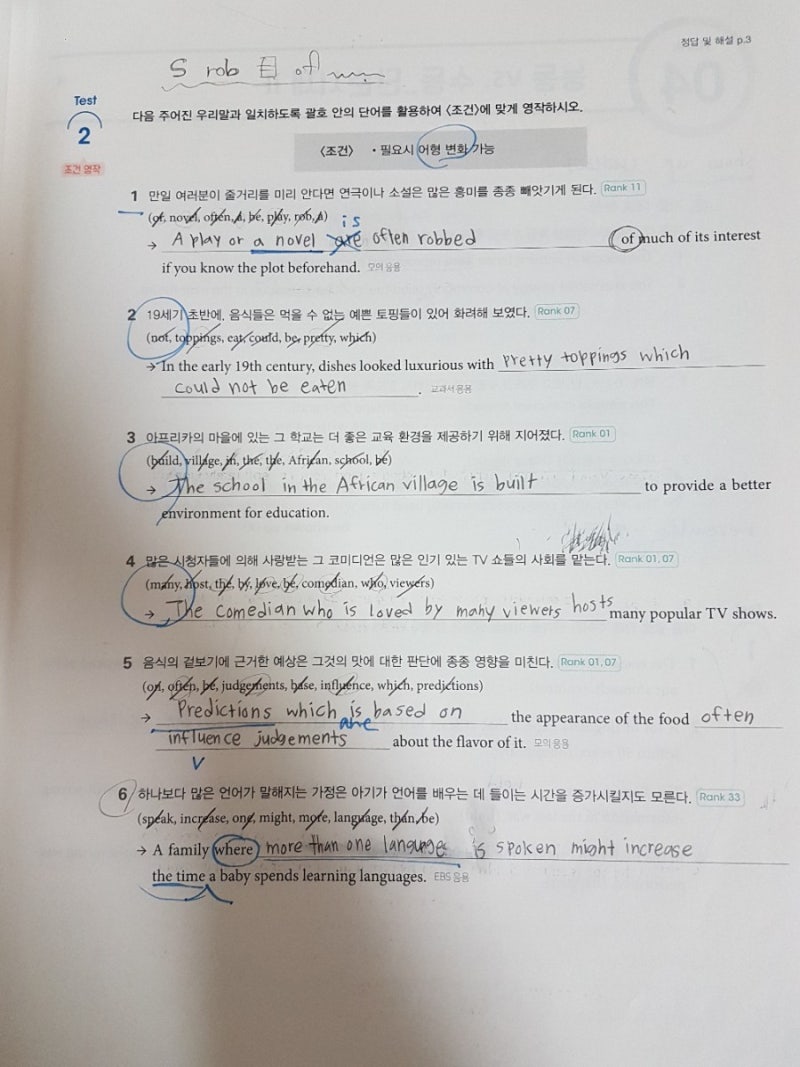 정답 및 해설 p.3
S rob 目 of
Test
2
조건 영작
다음 주어진 우리말과 일치하도록 괄호 안의 단어를 활용하여 <조건>에 맞게 영작하시오.
<조건> • 필요시 어형 변화 가능
1 만일 여러분이 줄거리를 미리 안다면 연극이나 소설은 많은 흥미를 종종 빼앗기게 된다. Rank 11
(of, novel, often, a, be, play, rob, a)
is
→ A play or a novel are often robbed of much of its interest
if you know the plot beforehand. 모의 응용
2 19세기 초반에, 음식들은 먹을 수 없는 예쁜 토핑들이 있어 화려해 보였다. Rank 07
(not, toppings, eat, could, be, pretty, which)
→ In the early 19th century, dishes looked luxurious with pretty toppings which
could not be eaten . 교과서 응용
3 아프리카의 마을에 있는 그 학교는 더 좋은 교육 환경을 제공하기 위해 지어졌다. Rank 01
(build, village, in, the, the, African, school, be)
→ The school in the African village is built to provide a better
environment for education.
4 많은 시청자들에 의해 사랑받는 그 코미디언은 많은 인기 있는 TV 쇼들의 사회를 맡는다. Rank 01, 07
(many, host, the, by, love, be, comedian, who, viewers)
→ The comedian who is loved by many viewers hosts many popular TV shows.
5 음식의 겉보기에 근거한 예상은 그것의 맛에 대한 판단에 종종 영향을 미친다. Rank 01, 07
(on, often, be, judgements, base, influence, which, predictions)
→ Predictions which is based on the appearance of the food often
are
influence judgements about the flavor of it. 모의 응용
V
6 하나보다 많은 언어가 말해지는 가정은 아기가 언어를 배우는 데 들이는 시간을 증가시킬지도 모른다. Rank 33
(speak, increase, one, might, more, language, than, be)
→ A family where more than one language is spoken might increase
the time a baby spends learning languages. EBS 응용